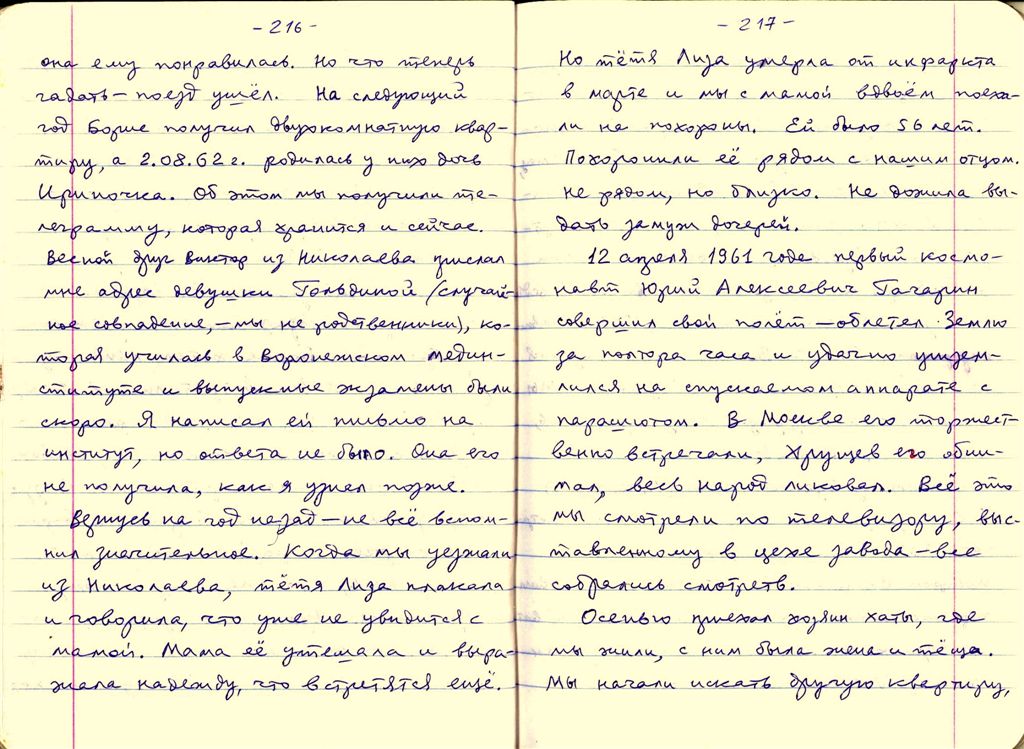 - 216 -
она ему понравилась. Но что теперь
гадать – поезд ушёл. На следующий
год Борис получил двухкомнатную квар-
тиру, а 2.08.62 г. родилась у них дочь
Ириночка. Об этом мы получили те-
леграмму, которая хранится и сейчас.
Весной друг Виктор из Николаева прислал
мне адрес девушки Гольдиной (случай-
ное совпадение, – мы не родственники), ко-
торая училась в Воронежском медин-
ституте и выпускные экзамены были
скоро. Я написал ей письмо на
институт, но ответа не было. Она его
не получила, как я узнал позже.
Вернусь на год назад – не всё вспом-
нил значительное. Когда мы уезжали
из Николаева, тётя Лиза плакала
и говорила, что уже не увидится с
мамой. Мама её утешала и выра-
жала надежду, что встретятся ещё.
- 217 -
Но тётя Лиза умерла от инфаркта
в марте и мы с мамой вдвоём поеха-
ли на похороны. Ей было 56 лет.
Похоронили её рядом с нашим отцом.
не рядом, но близко. Не дожила вы-
дать замуж дочерей.
12 апреля 1961 года первый космо-
навт Юрий Алексеевич Гагарин
совершил свой полёт – облетел Землю
за полтора часа и удачно призем-
лился на спускаемом аппарате с
парашютом. В Москве его торжест-
венно встречали, Хрущев его обни-
мал, весь народ ликовал. Всё это
мы смотрели по телевизору, выс-
тавленному в цехе завода – все
собрались смотреть.
Осенью приехал хозяин хаты, где
мы жили, с ним была жена и тёща.
Мы начали искать другую квартиру,